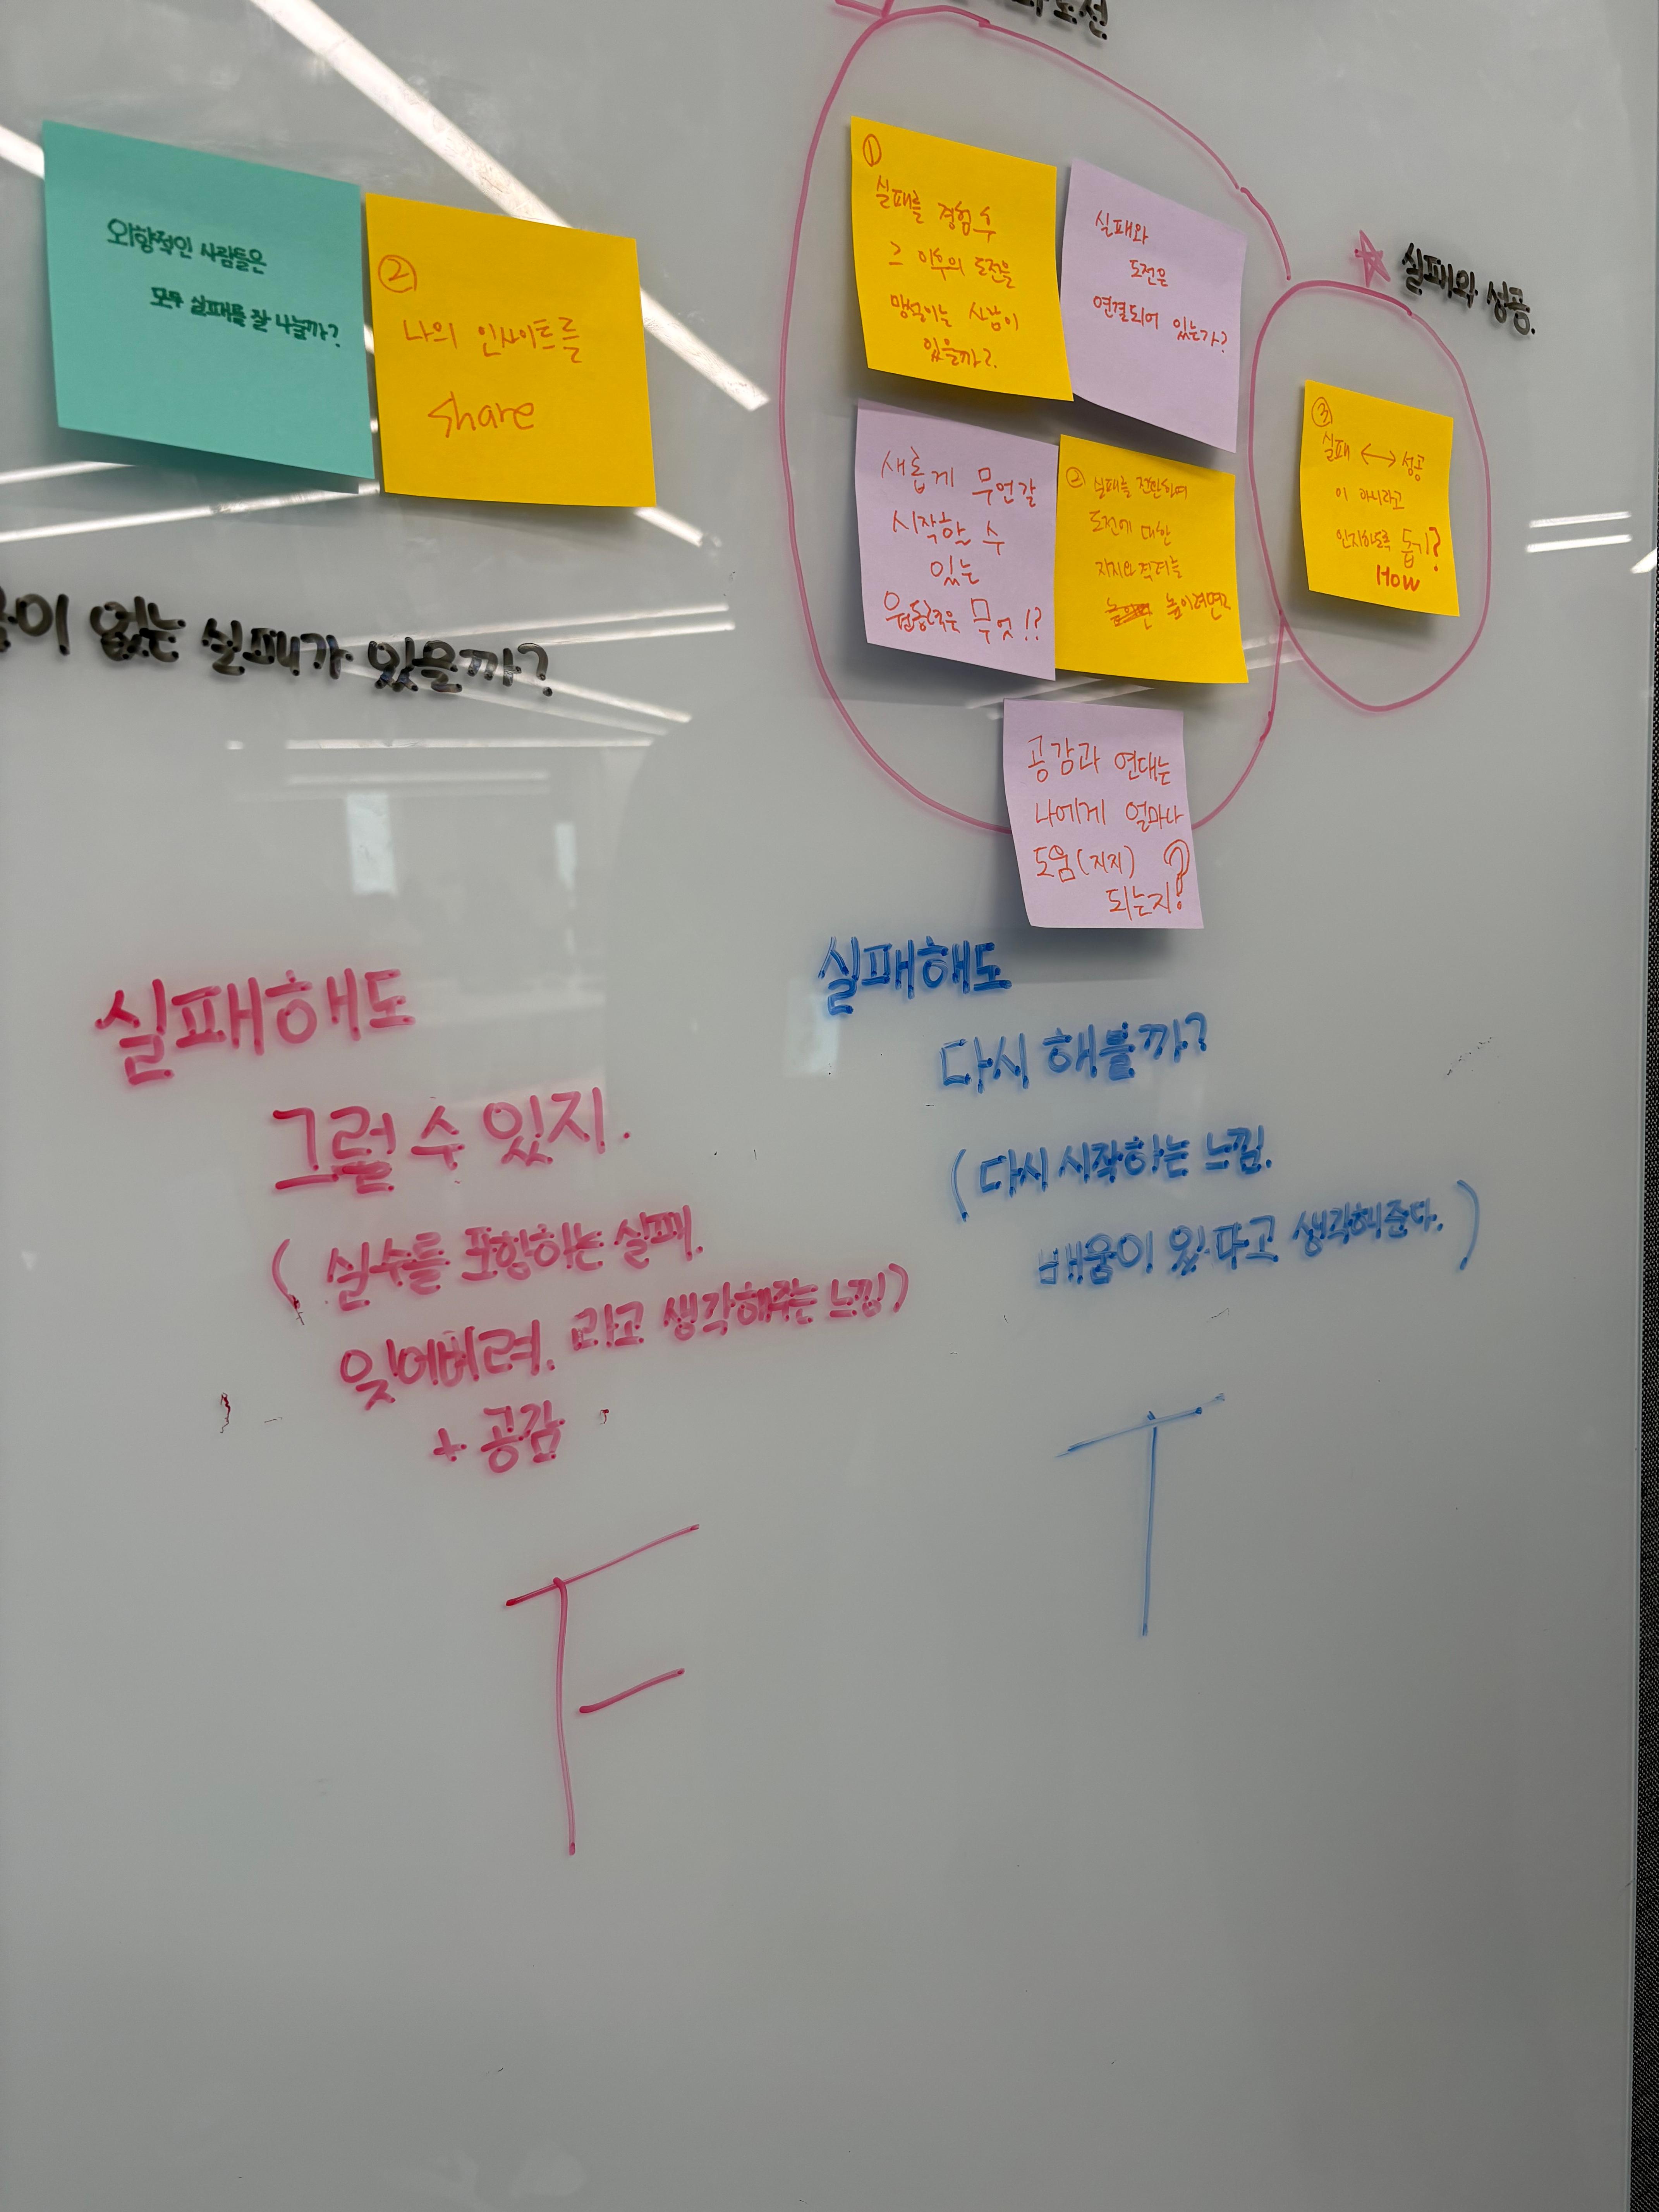 외향적인 사람들은
모두 실패를 잘 나눌까?
②
나의 인사이트를
share
없는 실패가 있을까?
①
실패를 경험 후
그 이후의 도전을
망설이는 사람이
있을까?
실패와
도전은
연결되어 있는가?
새롭게 무언갈
시작할 수
있는
원동력은 무엇!?
② 실패를 전환하여
도전에 대한
지지와 격려를
높이려면?
공감과 연대는
나에게 얼마나
도움(지지)
되는지?
실패와 성공.
③
실패 ↔ 성공
이 아니라고
인지하도록 돕기?
How
실패해도
그럴 수 있지.
(실수를 포함하는 실패.
잊어버려. 라고 생각해주는 느낌)
+ 공감
F
실패해도
다시 해볼까?
(다시 시작하는 느낌.
배움이 있다고 생각해준다.)
T